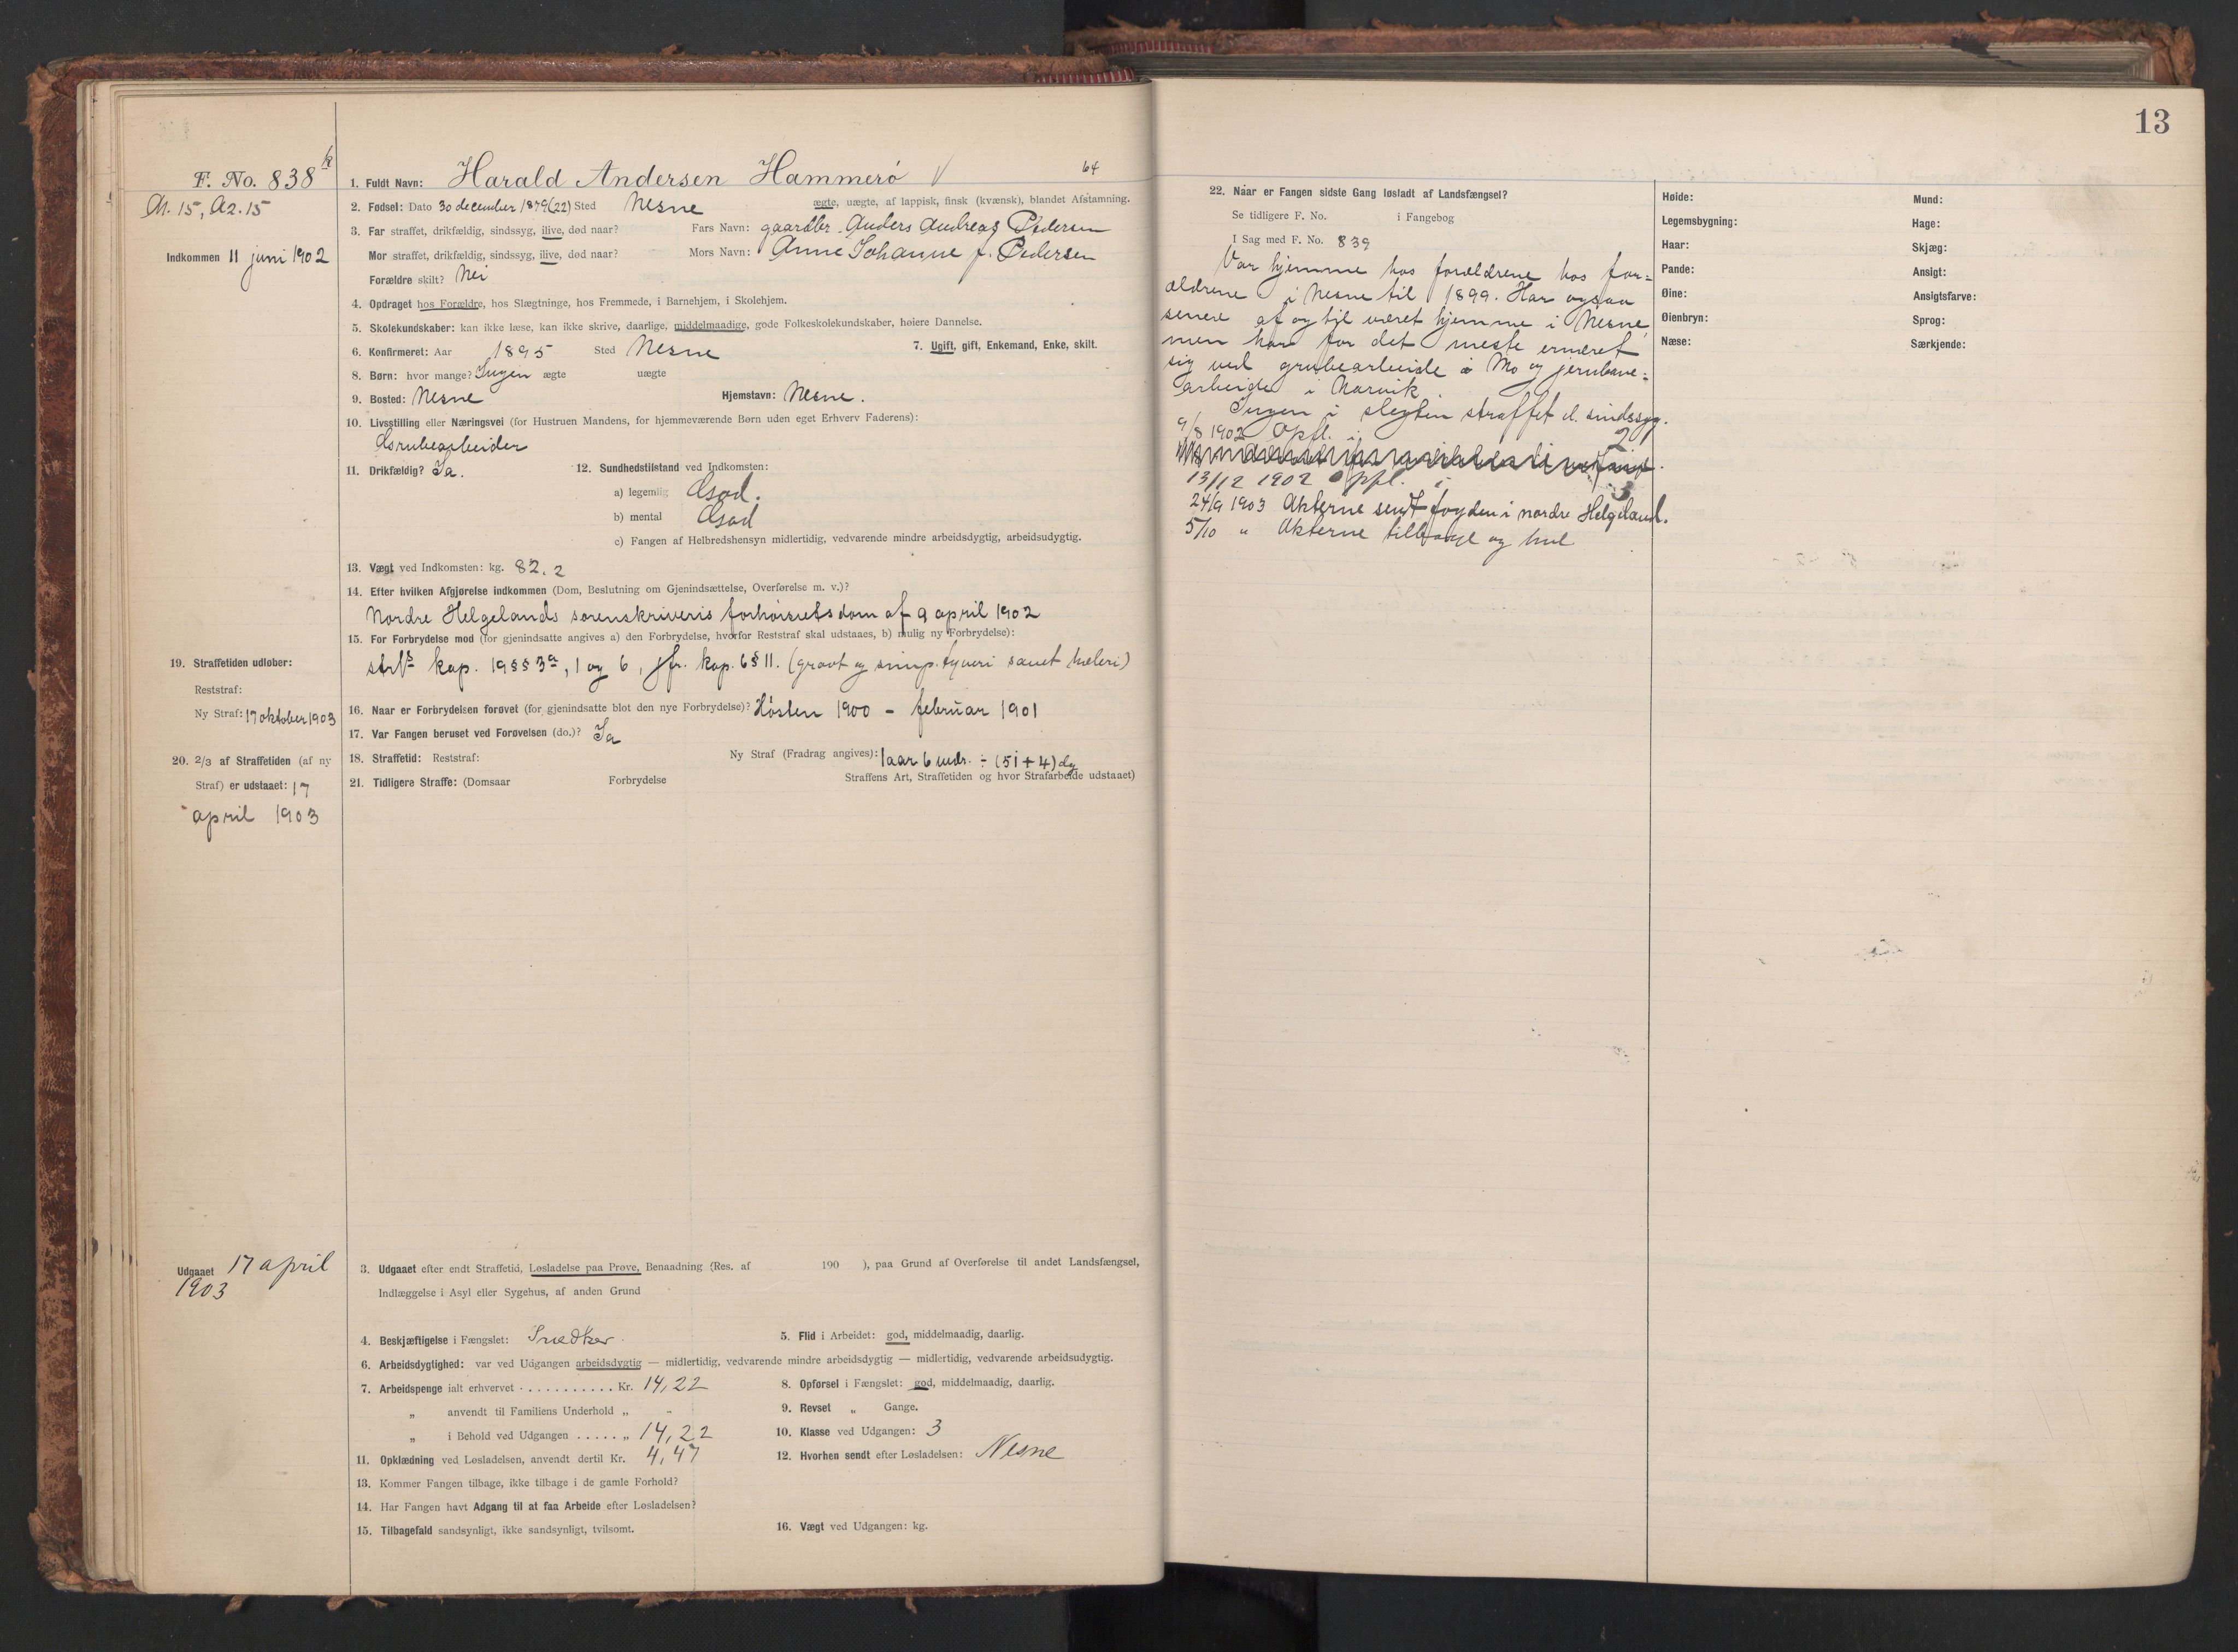 13
F. No. 838 k
A1. 15, A2. 15
Indkommen 11 juni 1902
1. Fuldt Navn: Harald Andersen Hammerø √ 64
2. Fødsel: Dato 30 december 1879 (22) Sted Nesne ægte, uægte, af lappisk, finsk (kvænsk), blandet Afstamning.
3. Far straffet, drikfældig, sindssyg, ilive, død naar? Fars Navn: gaardbr. Anders Andreas Pedersen
Mor straffet, drikfældig, sindssyg, ilive, død naar? Mors Navn: Anne Johanne f. Pedersen
Forældre skilt? Nei
4. Opdraget hos Forældre, hos Slægtninge, hos Fremmede, i Barnehjem, i Skolehjem.
5. Skolekundskaber: kan ikke læse, kan ikke skrive, daarlige, middelmaadige, gode Folkeskolekundskaber, høiere Dannelse.
6. Konfirmeret: Aar 1895 Sted Nesne 7. Ugift, gift, Enkemand, Enke, skilt.
8. Børn: hvor mange? Ingen ægte uægte
9. Bosted: Nesne Hjemstavn: Nesne.
10. Livsstilling eller Næringsvei (for Hustruen Mandens, for hjemmeværende Børn uden eget Erhverv Faderens):
Grubearbeider
11. Drikfældig? Ja. 12. Sundhedstilstand ved Indkomsten:
a) legemlig God.
b) mental God
c) Fangen af Helbredshensyn midlertidig, vedvarende mindre arbeidsdygtig, arbeidsudygtig.
13. Vægt ved Indkomsten: kg. 82.2
14. Efter hvilken Afgjørelse indkommen (Dom, Beslutning om Gjenindsættelse, Overførelse m. v.)?
Nordre Helgelands sorenskriveris forhørsretsdom af 9 april 1902
15. For Forbrydelse mod (for gjenindsatte angives a) den Forbrydelse, hvorfor Reststraf skal udstaaes, b) mulig ny Forbrydelse):
strl's kap. 19 §§ 3a, 1 og 6, jfr. kap. 6 § 11. (grovt og simp. tyveri samt hæleri)
19. Straffetiden udløber:
Reststraf:
Ny Straf: 17 oktober 1903
16. Naar er Forbrydelsen forøvet (for gjenindsatte blot den nye Forbrydelse)? Høsten 1900 - februar 1901
17. Var Fangen beruset ved Forøvelsen (do.)? Ja
20. 2/3 af Straffetiden (af ny
Straf) er udstaaet: 17
april 1903
18. Straffetid: Reststraf: Ny Straf (Fradrag angives): 1 aar 6 mdr. ÷ (51 + 4) dg
21. Tidligere Straffe: (Domsaar Forbrydelse Straffens Art, Straffetiden og hvor Strafarbeide udstaaet)
Udgaaet 17 april
1903
3. Udgaaet efter endt Straffetid, Løsladelse paa Prøve, Benaadning (Res. af 190 ), paa Grund af Overførelse til andet Landsfængsel,
Indlæggelse i Asyl eller Sygehus, af anden Grund
4. Beskjæftigelse i Fængslet: Snedker 5. Flid i Arbeidet: god, middelmaadig, daarlig.
6. Arbeidsdygtighed: var ved Udgangen arbeidsdygtig — midlertidig, vedvarende mindre arbeidsdygtig — midlertidig, vedvarende arbeidsudygtig.
7. Arbeidspenge ialt erhvervet . . . . . . . . . . . Kr. 14,22 8. Opførsel i Fængslet: god, middelmaadig, daarlig.
„ anvendt til Familiens Underhold „ - 9. Revset „ Gange.
„ i Behold ved Udgangen . . . . . „ 14,22 10. Klasse ved Udgangen: 3
11. Opklædning ved Løsladelsen, anvendt dertil Kr. 4,47 12. Hvorhen sendt efter Løsladelsen: Nesne
13. Kommer Fangen tilbage, ikke tilbage i de gamle Forhold?
14. Har Fangen havt Adgang til at faa Arbeide efter Løsladelsen?
15. Tilbagefald sandsynligt, ikke sandsynligt, tvilsomt. 16. Vægt ved Udgangen: kg.
22. Naar er Fangen sidste Gang løsladt af Landsfængsel?
Se tidligere F. No. i Fangebog
I Sag med F. No. 839
Var hjemme hos forældrene hos for=
ældrene i Nesne til 1899. Har ogsaa
senere af og til været hjemme i Nesne,
men har for det meste ernæret
sig ved grubearbeide i Mo og jernbane=
arbeide i Narvik.
Ingen i slegten straffet el. sindssyg.
9/8 1902 Opfl. i 2
13/12 1902 Opfl. i 3
24/9 1903 Akterne sendt fogden i nordre Helgeland.
5/10 " Akterne tilbage og hul
Høide:
Legemsbygning:
Haar:
Pande:
Øine:
Øienbryn:
Næse:
Mund:
Hage:
Skjæg:
Ansigt:
Ansigtsfarve:
Sprog:
Særkjende: